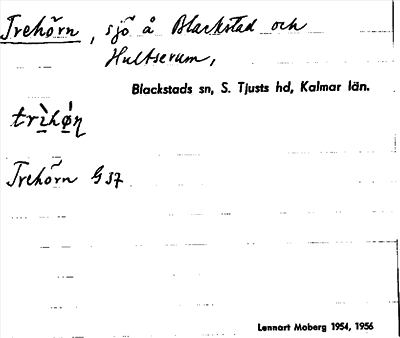 Trehörn, sjö å Blackstad och
Hultserum,
Blackstads sn, S. Tjusts hd, Kalmar län.
trìhǿn̥
Trehörn G 37
Lennart Moberg 1954, 1956